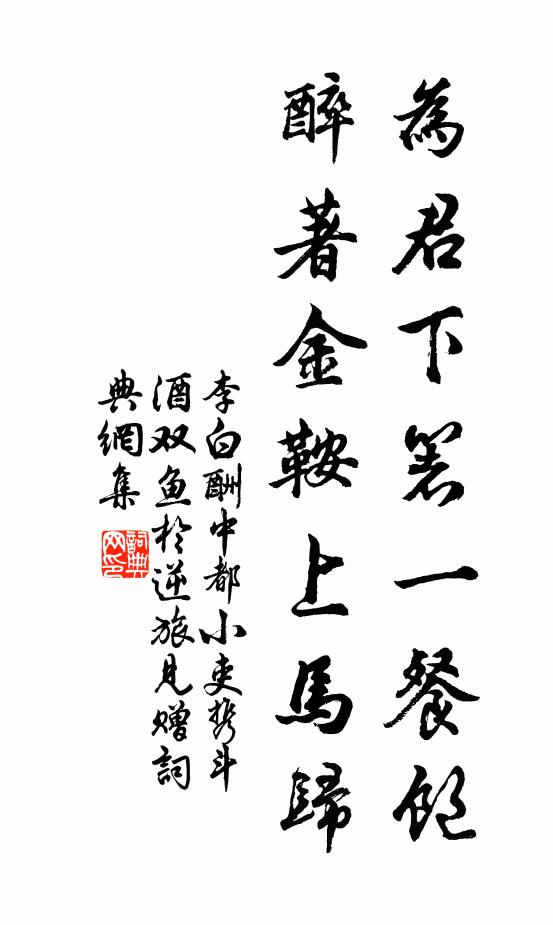 為君下箸一餐飽
醉著金鞍上馬歸
李白酬中都小吏携斗
酒双鱼於逆旅見赠詞
典網集
詞典
网印